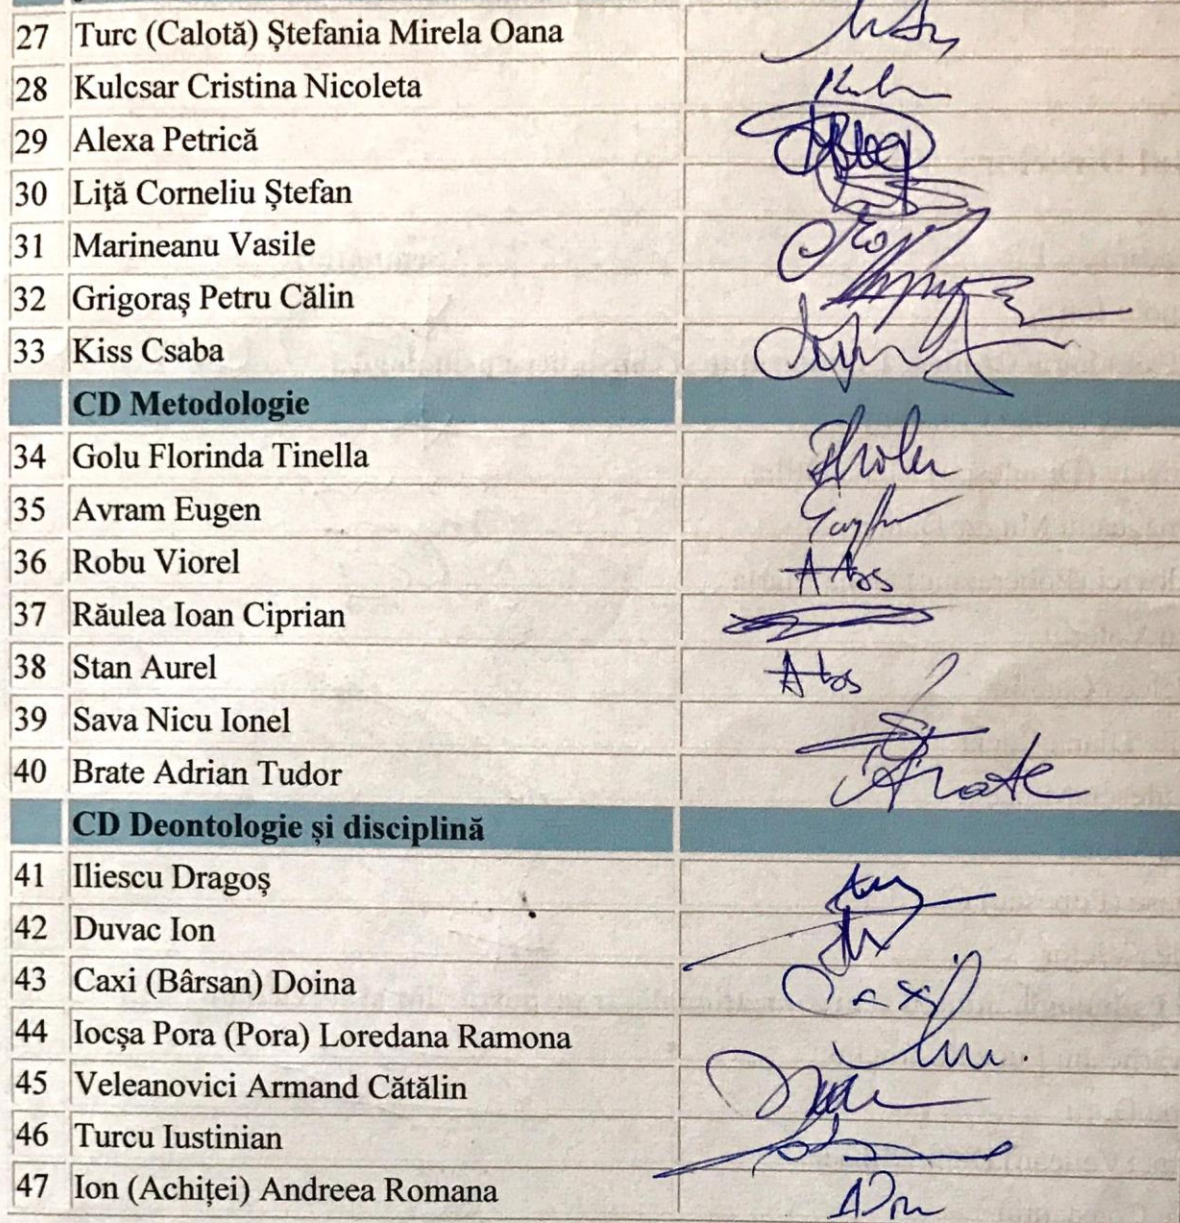 27 Turc (Calotă) Ștefania Mirela Oana
28 Kulcsar Cristina Nicoleta
29 Alexa Petrică
30 Liţă Corneliu Ștefan
31 Marineanu Vasile
32 Grigoraş Petru Călin
33 Kiss Csaba
CD Metodologie
34 Golu Florinda Tinella
35 Avram Eugen
36 Robu Viorel Abs
37 Răulea Ioan Ciprian
38 Stan Aurel Abs
39 Sava Nicu Ionel
40 Brate Adrian Tudor
CD Deontologie și disciplină
41 Iliescu Dragoș
42 Duvac Ion
43 Caxi (Bârsan) Doina Caxi
44 Iocșa Pora (Pora) Loredana Ramona
45 Veleanovici Armand Cătălin
46 Turcu Iustinian
47 Ion (Achiței) Andreea Romana